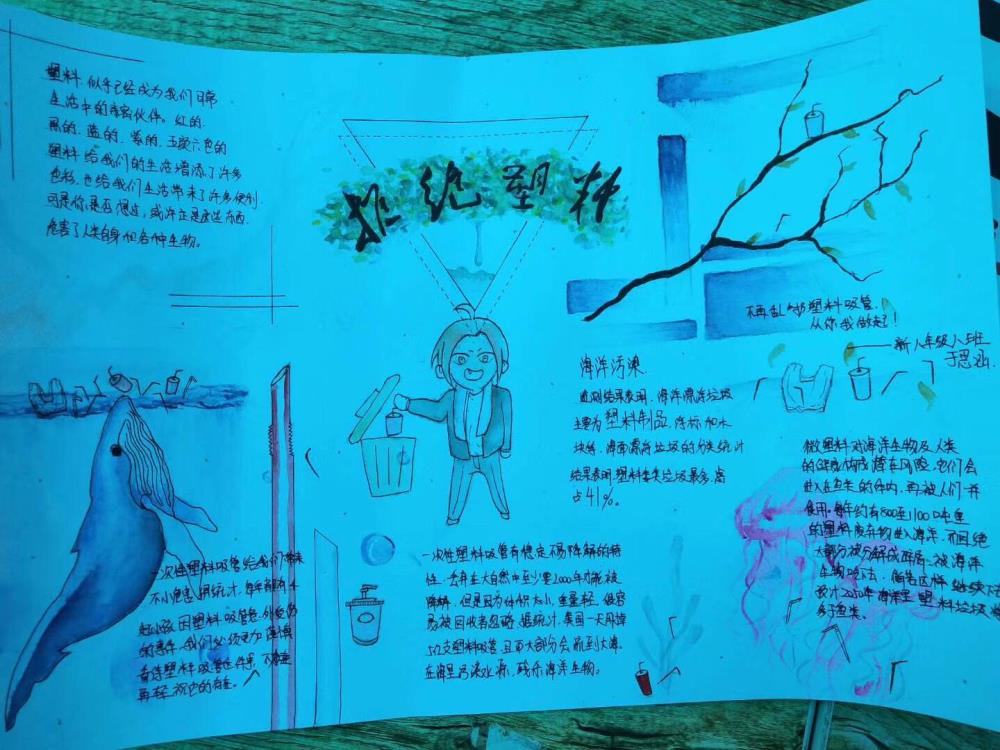 塑料，似乎已经成为我们日常
生活中的亲密伙伴。红的、
黑的、蓝的、紫的、五颜六色的
塑料给我们的生活增添了许多
色彩，也给我们生活带来了许多便利
可是你是否想过，或许正是这些东西，
危害了人类自身和各种生物。
拒绝塑料
不再乱扔塑料吸管，
从你我做起！
新八年级八班
于思涵
海洋污染
监测结果表明，海洋漂浮垃圾
主要为塑料制品、浮标和木
块等，海面漂浮垃圾的分类统计
结果表明，塑料类垃圾最多，高
占41%。
微塑料对海洋生物及人类
的健康构成潜在风险，它们会
进入在鱼类的体内，再被人们
食用。每年约有800至1100吨重
的塑料废弃物进入海洋，而因绝
大部分被分解成碎屑，被海洋
生物吃下去，倘若这样继续下
预计2050年海洋里塑料垃圾
多于鱼类。
一次性塑料吸管给我们带来
不小危害，据统计，每年都有
起小孩因塑料吸管意外受伤
的事件，我们必须更加谨慎
看待塑料吸管这件事，不能
再轻视它的存在。
一次性塑料吸管有稳定不易降解的特
性，丢弃在大自然中至少要2000年才能被
降解，但是因为体积太小，重量轻，很容
易被回收者忽略，据统计，美国一天用掉
5亿支塑料吸管，且而大部分会流到大海，
在海里污染水源，残杀海洋生物。